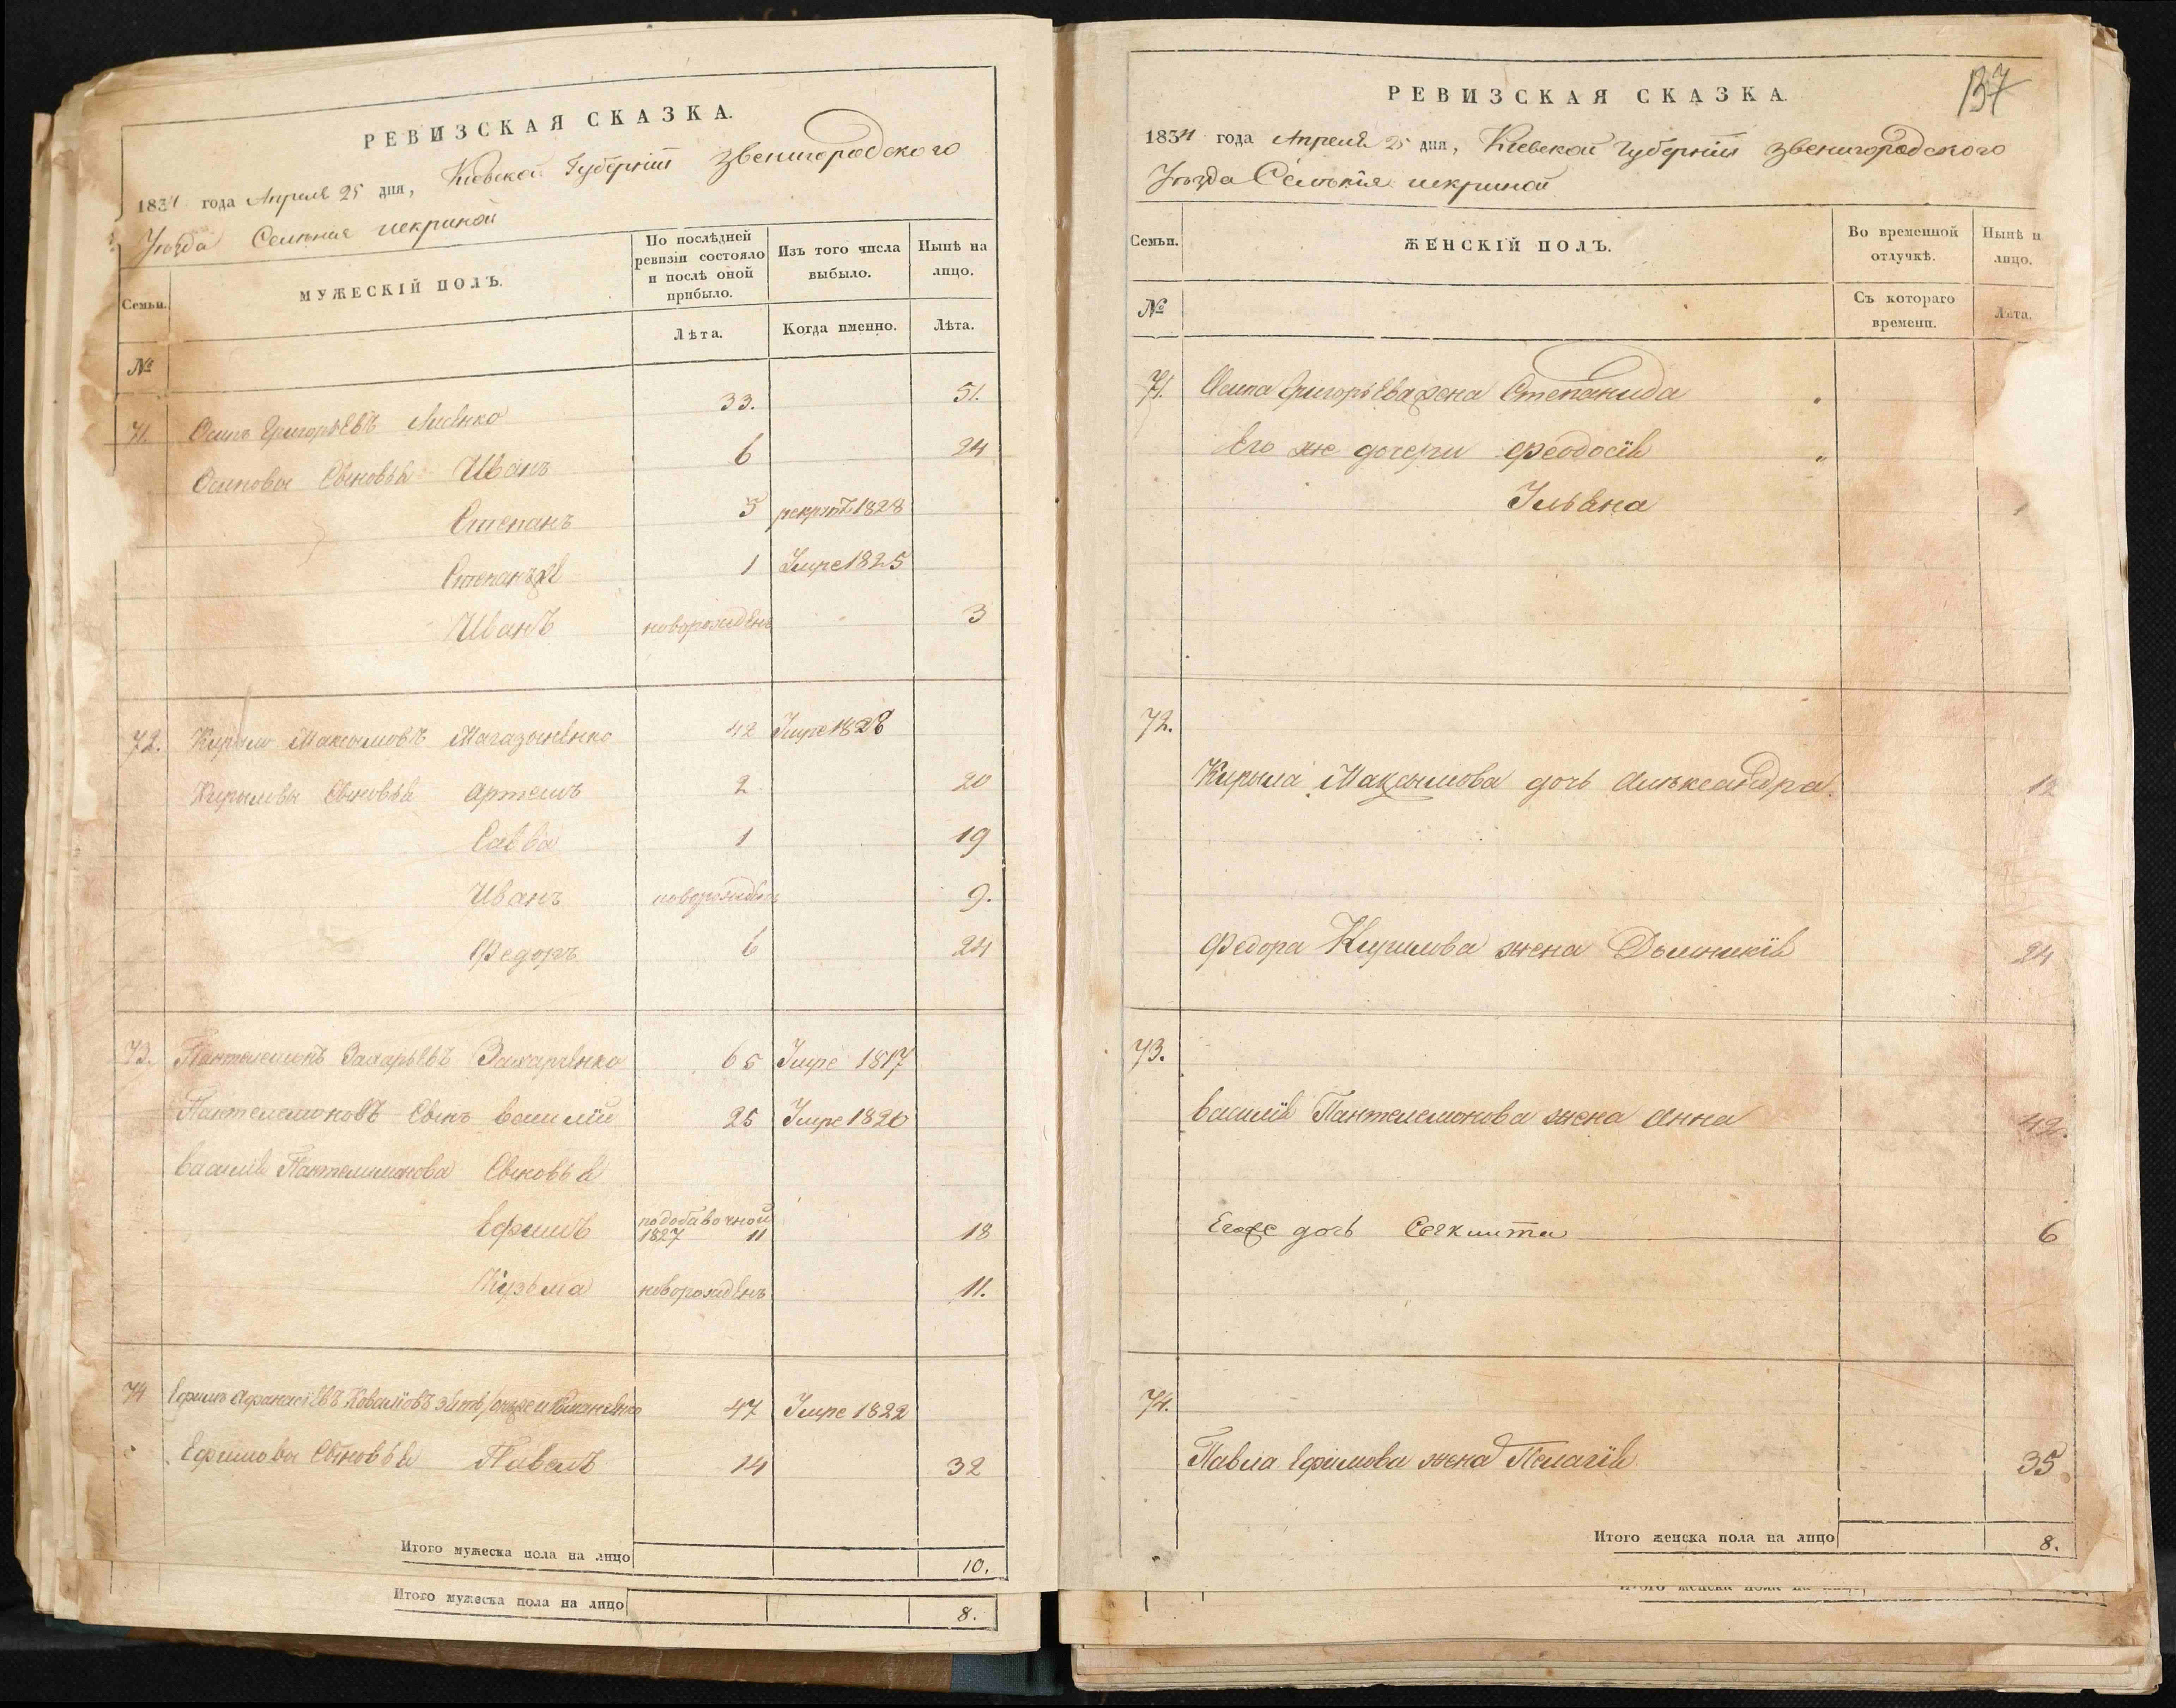 РЕВИЗСКАЯ СКАЗКА.
1834 года Апреля 25 дня, Кіевской Губерніи Звенигородского
Уѣзда Селѣнія Искриной
Семьи. МУЖЕСКІЙ ПОЛЪ. По послѣдней ревизіи состояло и послѣ оной прибыло. Изъ того числа выбыло. Нынѣ на лицо.
№ Лѣта. Когда именно. Лѣта.
71. Осипъ Григорьевъ Лисѣнко 33. 51.
Осиповы Сыновья Иванъ 6 24
Степанъ 5 рекрут 1828
Степанъ 1 Умре 1825
Иванъ новорожденъ 3
72. Кирыло Максымовъ Магазынѣнко 42 Умре 1828
Кирыловы Сыновья Артемъ 2 20
Савва 1 19
Иванъ новорожденъ 9.
Федоръ 6 24
73. Пантелемонъ Захарьевъ Захарчѣнко 65 Умре 1817
Пантелемоновъ Сынъ Василій 25 Умре 1820
Василія Пантелимонова Сыновья
Ефимъ по добавочной 1827 11 18
Кузьма новорожденъ 11.
74 Ефимъ Афанасіевъ 47 Умре 1822
Ефимовы Сыновья Павелъ 14 32
Итого мужеска пола на лицо 10.
Итого мужеска пола на лицо 8.
137
РЕВИЗСКАЯ СКАЗКА.
1834 года Апреля 25 дня, Кіевской Губерніи Звенигородского
Уѣзда Селѣнія Искриной
Семьи. ЖЕНСКІЙ ПОЛЪ. Во временной отлучкѣ. Нынѣ н лицо.
№ Съ котораго времени. Лѣта.
71. Осипа Григорьева жена Степанида
Его же дочери Феодосія
Ульяна
72.
Кирыла Максымова дочь Алѣксандра. 12
Федора Кирилова жена Домникія 24
73.
Василія Пантелемонова жена Анна 42.
Егоже дочь 6
74.
Павла Ефимова жена Пелагія 35
Итого женска пола на лицо 8.